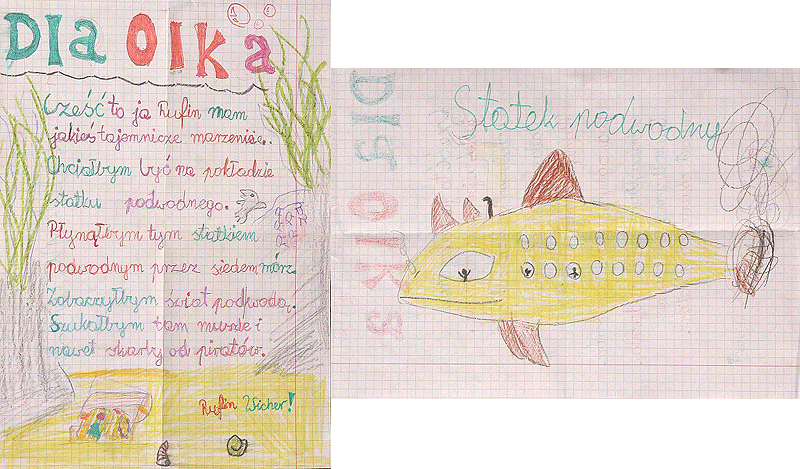 Dla Olka
Cześć to ja Rufin mam
jakieś tajemnicze marzenie.
Chciałbym być na pokładzie
statku podwodnego.
Płynąłbym tym statkiem
podwodnym przez siedem mórz.
Zobaczyłbym świat podwodą.
Szukałbym tam muszle i
nawet skarby od piratów.
Rufin Wicher!
Statek podwodny